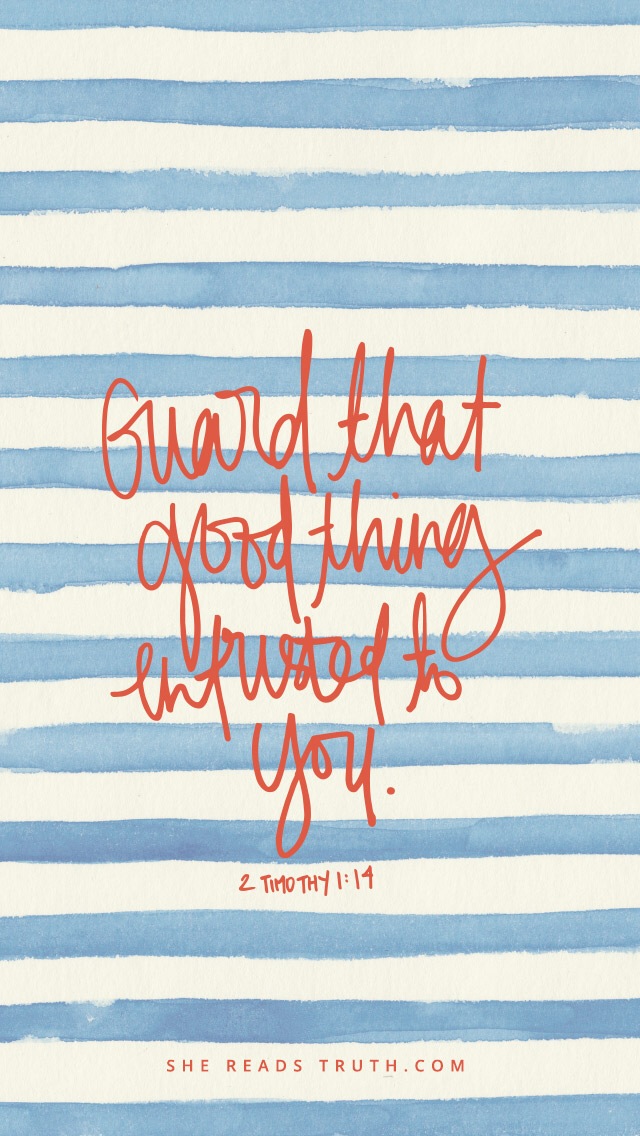 Guard that
good thing
entrusted to
you.
2 TIMOTHY 1:14
SHE READS TRUTH.COM